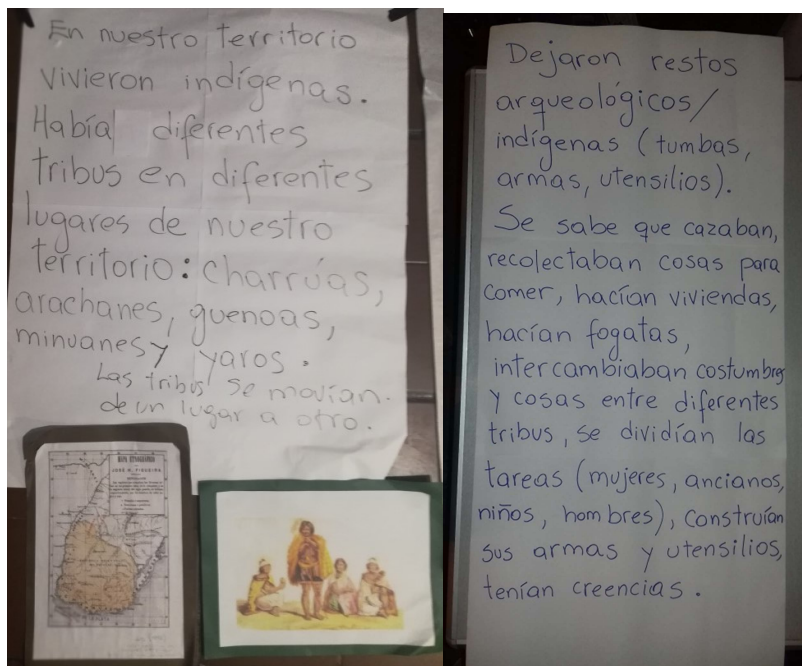 En nuestro territorio
vivieron indígenas.
Había diferentes
tribus en diferentes
lugares de nuestro
territorio: charrúas,
arachanes, guenoas,
minuanes y yaros.
Las tribus se movían
de un lugar a otro.
MAPA ETNOGRÁFICO
JOSÉ H. FIGUEIRA
Dejaron restos
arqueológicos/
indígenas (tumbas,
armas, utensilios).
Se sabe que cazaban,
recolectaban cosas para
comer, hacían viviendas,
hacían fogatas,
intercambiaban costumbres
y cosas entre diferentes
tribus, se dividían las
tareas (mujeres, ancianos,
niños, hombres), construían
sus armas y utensilios,
tenían creencias.